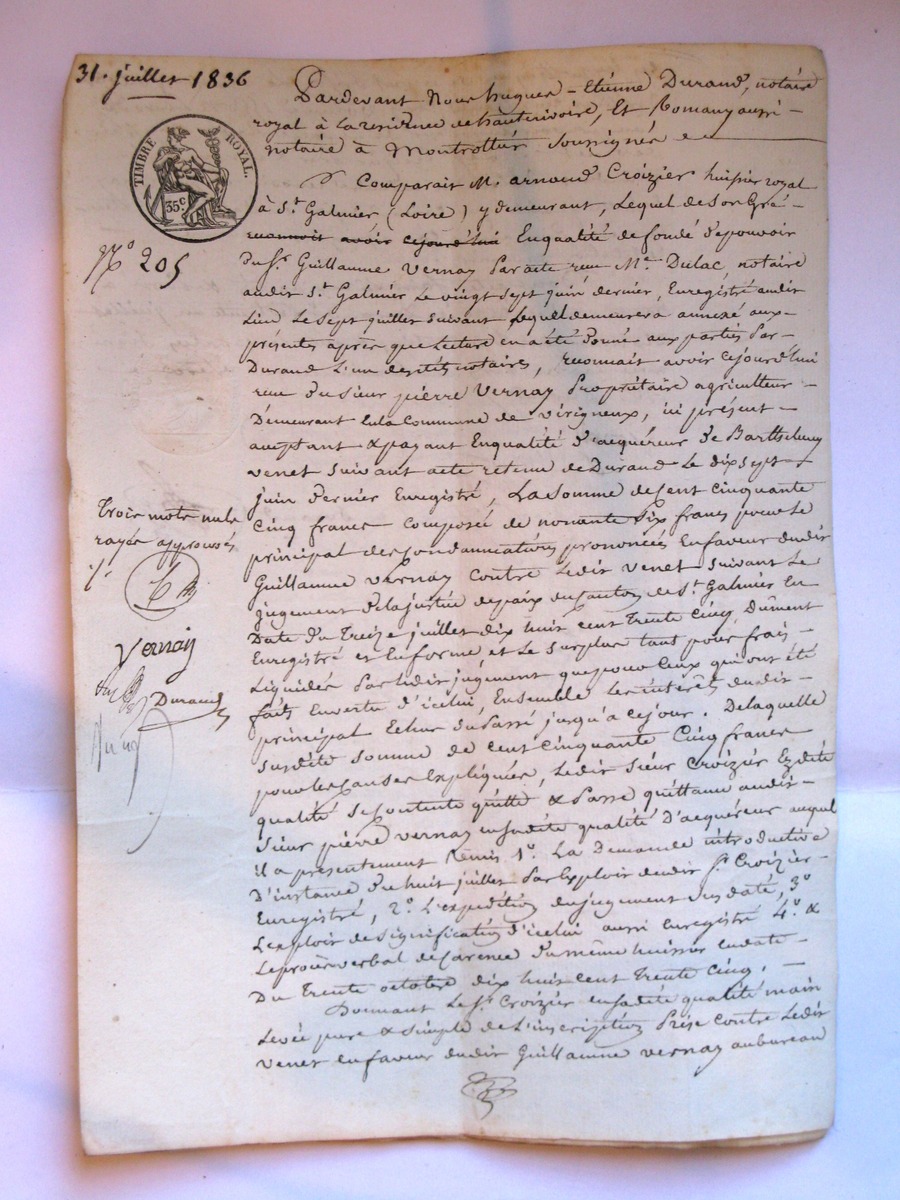 31. juillet 1836
TIMBRE ROYAL.
35 c
N.o 205
Pardevant Nous hugues - Etienne Durand, notaire
royal à la residence de hauterivoire, Et Romany aussi -
notaire à Montrottier soussignés
Comparait M. arnaud Croizier huissier royal
à S.t Galmier (Loire) y demeurant, Lequel de Son Gré -
reconnoit avoir cejourd'hui En qualité de fondé de pouvoir
du S.r Guillaume Vernay Par acte reçu M.e Dulac, notaire
audit S.t Galmier Le vingt sept juin dernier, Enregistré audit
Lieu Le Sept juillet suivant Lequel demeurera annexé aux -
présentes après que Lecture en a été donné aux parties Par -
Durand L'un desdits notaires, reconnait avoir cejourd'hui
reçu du Sieur pierre Vernay Propriétaire agriculteur -
Demeurant En la Commune de Virigneux, ici présent -
acceptant & payant En qualité d'acquéreur de
venet suivant acte retenu de Durand Le dix sept -
juin dernier Enregistré, La Somme de Cent Cinquante
Cinq francs Composée de nonante Six francs pour Le
principal des Condamnations prononcées En faveur dudit
Guillaume Vernay Contre Ledit Venet suivant Le
jugement de la justice de paix du Canton de S.t Galmier En
Date du Treize juillet dix huit cent Trente Cinq, Dûment
Enregistré et En forme et Le Surplus tant pour frais -
Liquidés Par Ledit jugement que pour Ceux qui ont été
faits En vertu d'icelui, Ensemble Les intérêts dudit -
principal Echus du Passé jusqu'à ce jour. De laquelle
susdite somme de cent Cinquante Cinq francs
pour les Causes Expliquées, Ledit Sieur Croizier Esdite
qualité Se Contente quitte & Passe quittance audit -
Sieur pierre Vernay en sadite qualité d'acquéreur auquel
il a présentement Remis 1.o La Demande introductive
D'instance du huit juillet Par Exploit dudit S.r Croizier -
Enregistré, 2.o L'expédition du jugement susdaté, 3.o
L'exploit de Signification d'icelui aussi Enregistré 4.o &
Le procès verbal de Carence du même huissier En date -
Du Trente octobre dix huit Cent Trente Cinq. -
Donnant Le S.r Croizier en sadite qualité main
Levée pure & Simple de L'inscription Prise Contre Ledit
Venet En faveur dudit Guillaume Vernay au bureau
trois mots nuls
rayés approuvés
Vernay
Durand